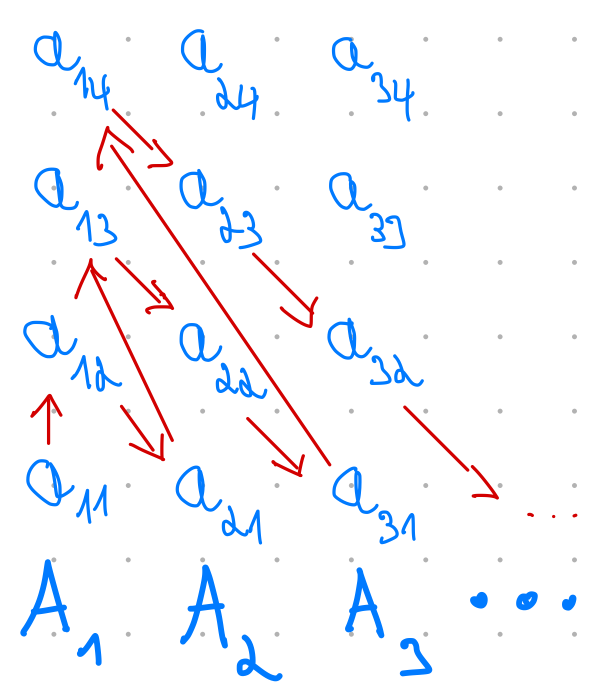 a₁₄ a₂₄ a₃₄
a₁₃ a₂₃ a₃₃
a₁₂ a₂₂ a₃₂
a₁₁ a₂₁ a₃₁ ...
A₁ A₂ A₃ ...